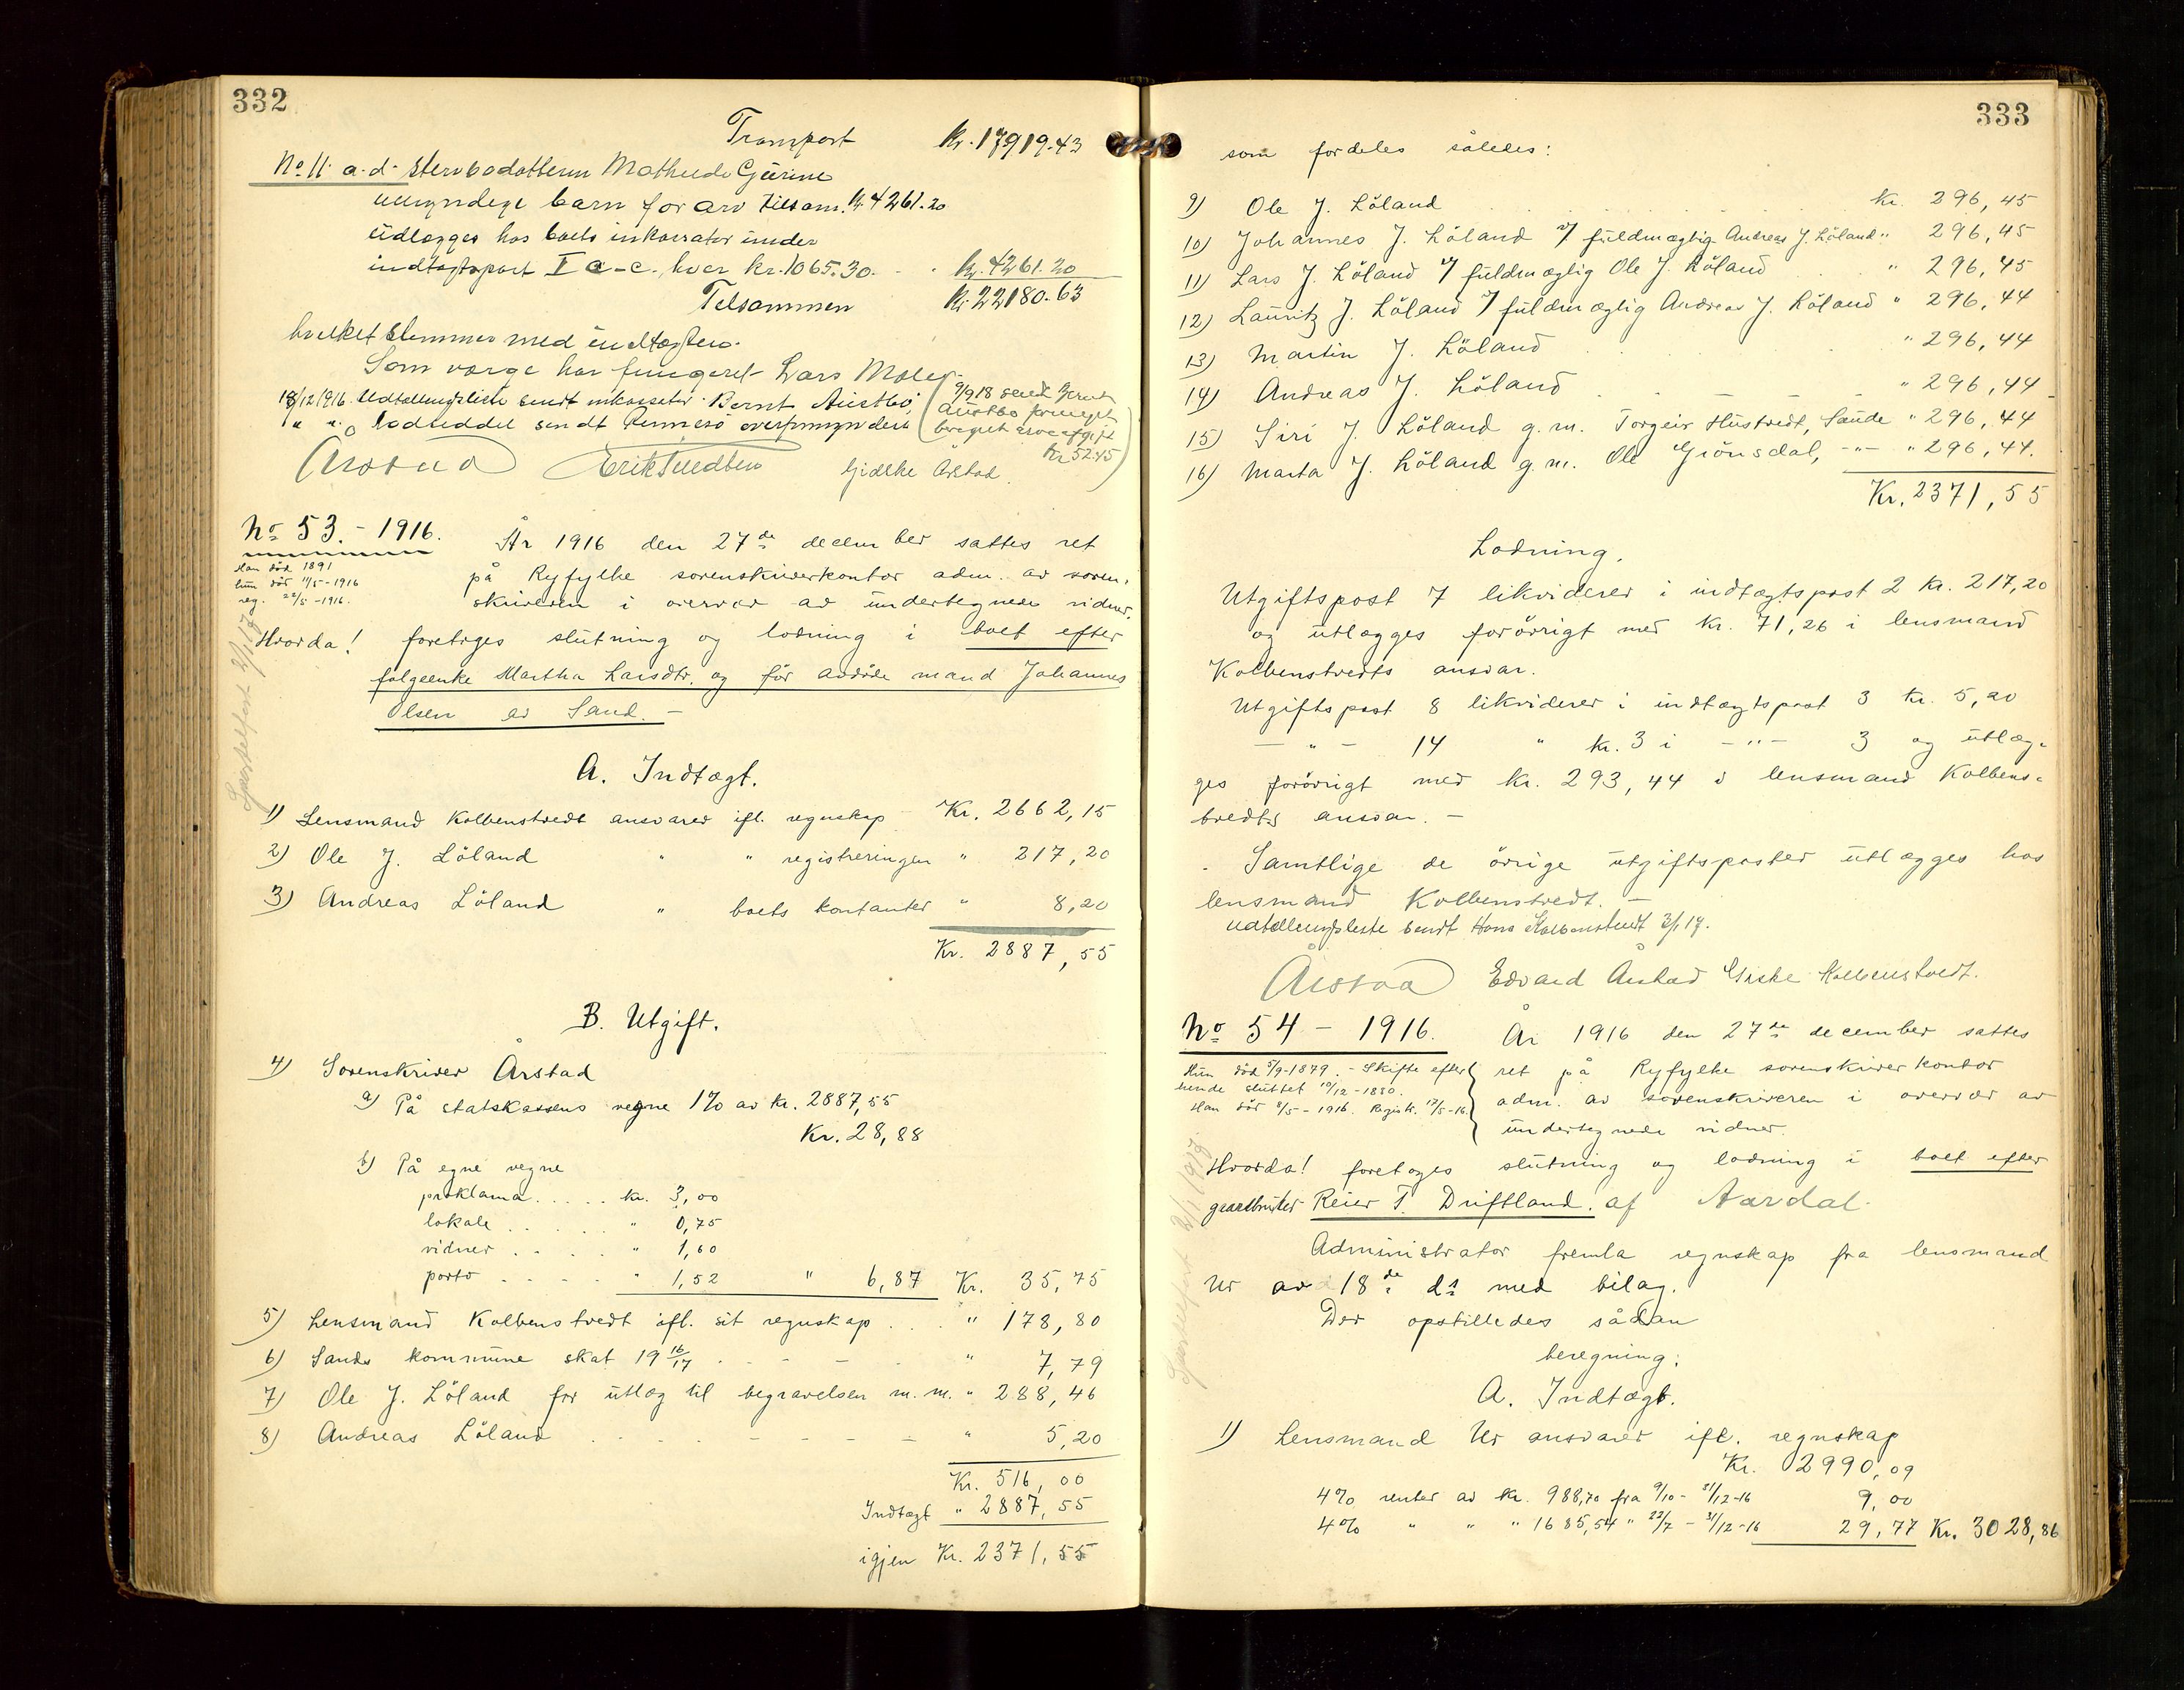 332
Transport Kr. 17919.43
No 11. a-d. sterbodatteren
umyndige barn for arv tilsam. kr 4261.20
udlægges hos boets inkassator under
indtægtspost I a-c. hver kr. 1065.30. - . kr. 4261.20
Tilsammen kr 22180.63
hvilket stemmer med indtægten.
Som værge har fungeret Lars
18/12 1916. Udtællingsliste sendt inkassator Bernt Austbø,
" ". lodseddel sendt Rennesø overformynderi
(9/9 18 sendt Bernt
Austbø
beregnet arveafgift
Kr 52.45)
Årstad Gidske Årstad.
No 53. - 1916.
Han död 1891
hun död 11/5 - 1916
reg. 22/5 - 1916.
År 1916 den 27de december sattes ret
på Ryfylke sorenskriverkontor adm. av soren-
skriveren i overvær av undertegnede vidner.
Hvorda! foretoges slutning og lodning i boet efter
følgeenke Martha Larsdtr. og för avdöde mand Johannes
Olsen av Sand. -
A. Indtægt.
1) Lensmand Kolbenstvedt ansvarer ifl. regnskap Kr. 2662,15
2) Ole J. Löland " " registreringen " 217,20
3) Andreas Löland " boets kontanter " 8,20
Kr. 2887,55
B. Utgift.
4) Sorenskriver Årstad
a) På statskassens vegne 1% av kr. 2887,55
Kr. 28,88
b) På egne vegne
proklama . . . . . kr. 3,00
lokale . . . . . " 0,75
vidner . . . . " 1,60
porto . . . . . " 1,52 " 6,87 Kr. 35,75
5) Lensmand Kolbenstvedt ifl. sit regnskap . . . " 178,80
6) Sands kommune skat 19 16/17 . - - - . " 7,79
7) Ole J. Löland for utlæg til begravelsen m. m. " 288,46
8) Andreas Löland . - . - - - - " 5,20
Kr. 516,00
Indtægt " 2887,55
igjen Kr. 2371,55
333
som fordeles således:
9) Ole J. Löland . . . . . . . kr. 296,45
10) Johannes J. Löland v/ fuldmægtig Andreas J. Löland " 296,45
11) Lars J. Löland v/ fuldmægtig Ole J. Löland . . " 296,45
12) Lauritz J. Löland v/ fuldmægtig Andreas J. Löland " 296,44
13) Martin J. Löland . . . " 296,44
14) Andreas J. Löland . . . . " 296,44
15) Siri J. Löland g. m. Torgeir Hustvedt, Saude " 296,44
16) Marta J. Löland g. m. Ole Grönsdal, -"- " 296,44.
Kr. 2371,55
Lodning.
Utgiftspost 7 likviderer i indtægtspost 2 kr. 217,20
og utlægges forövrigt med kr. 71,26 i lensmand
Kolbenstvedts ansvar.
Utgiftspost 8 likviderer i indtægtspost 3 kr. 5,20
- " - 14 " kr. 3 i - " - 3 og utlæg-
ges forövrigt med kr. 293,44 i lensmand Kolbens-
tvedts ansvar. -
Samtlige de övrige utgiftsposter utlægges hos
lensmand Kolbenstvedt. -
Udtællingsliste sendt Hans Kolbenstvedt 3/1 17.
Årstad Edvard Årstad Giske Kolbenstvedt.
No 54 - 1916.
Hun död 5/9-1879. - Skifte efter
hende sluttet 10/12 - 1880.
Han död 8/5 - 1916. Regist. 17/5-16.
År 1916 den 27de december sattes
ret på Ryfylke sorenskriverkontor
adm. av sorenskriveren i overvær av
undertegnede vidner.
Hvorda! foretoges slutning og lodning i boet efter
gaardbruker Reier T. Driftland. af Aardal.
Administrator fremla regnskap fra lensmand
Ur av 18de ds med bilag.
Der opstilledes sådan
beregning:
A. Indtægt.
1) Lensmand Ur ansvarer ifl. regnskap
Kr. 2990,09
4% renter av kr. 988,70 fra 9/10 - 31/12-16 9,00
4% " " " 1685,54 " 22/7 - 31/12-16 29,77 Kr. 3028,86